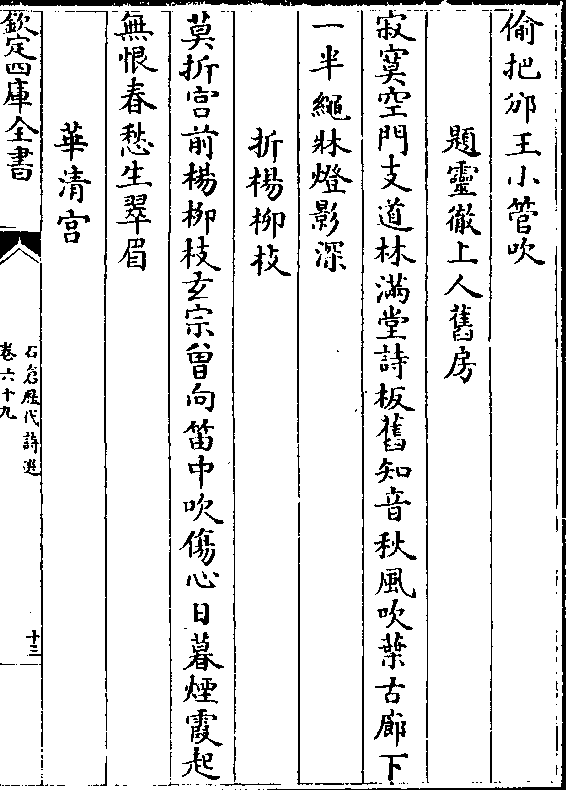 偷把邠王小管吹
題靈徹上人舊房
寂寞空門支道林滿堂詩板舊知音秋風吹葉古廊下
一半繩牀燈影深
折楊柳枝
莫折宮前楊柳枝玄宗曾向笛中吹傷心日暮煙霞起
無恨春愁生翠眉
華清宮
欽定四庫全書
石倉歷代詩選
卷六十九
十三